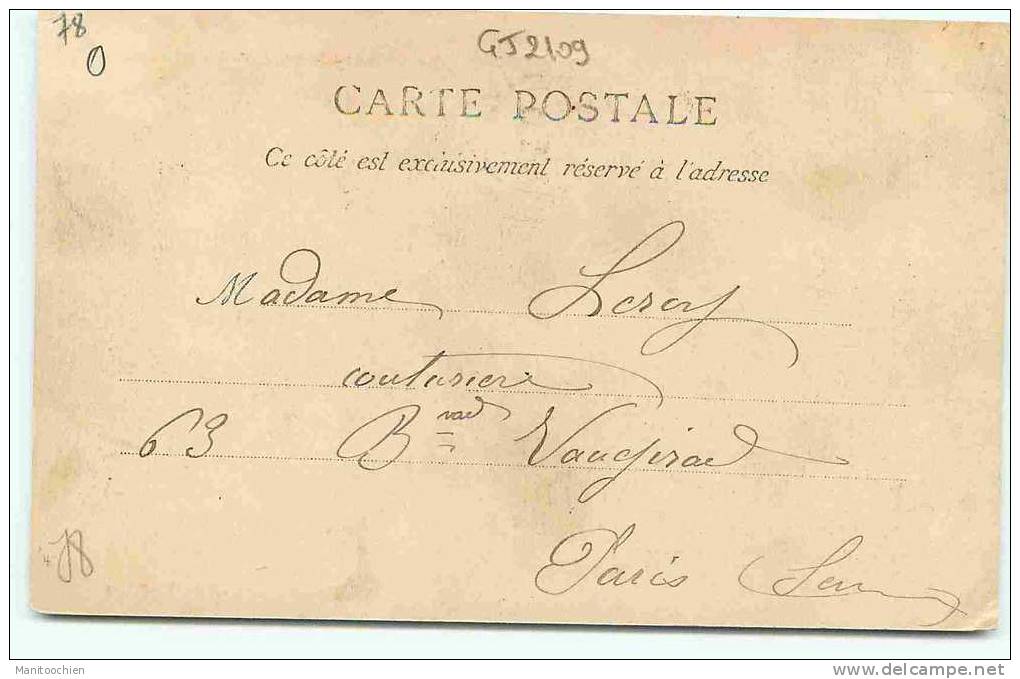 78
0
GJ2109
CARTE POSTALE
Ce côté est exclusivement réservé à l'adresse
Madame Leroy
couturiere
63 Bvad Vaugirad
Paris
78
Manitoochien
delcampe.net